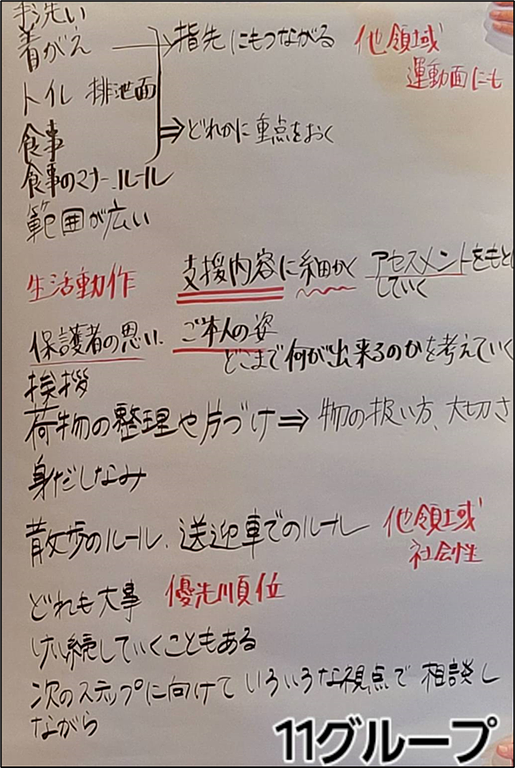 手洗い
着がえ 指先にもつながる 他領域
運動面にも
トイレ 排泄面
⇒どれかに重点をおく
食事
食事のマナー、ルール
範囲が広い
生活動作 支援内容に細かく アセスメントをもとに
していく
保護者の思い、ご本人の姿
どこまで何が出来るのかを考えていく
挨拶
荷物の整理や片づけ⇒物の扱い方、大切さ
身だしなみ
散歩のルール、送迎車でのルール 他領域
社会性
どれも大事 優先順位
けい続していくこともある
次のステップに向けていろいろな視点で相談し
ながら
11グループ